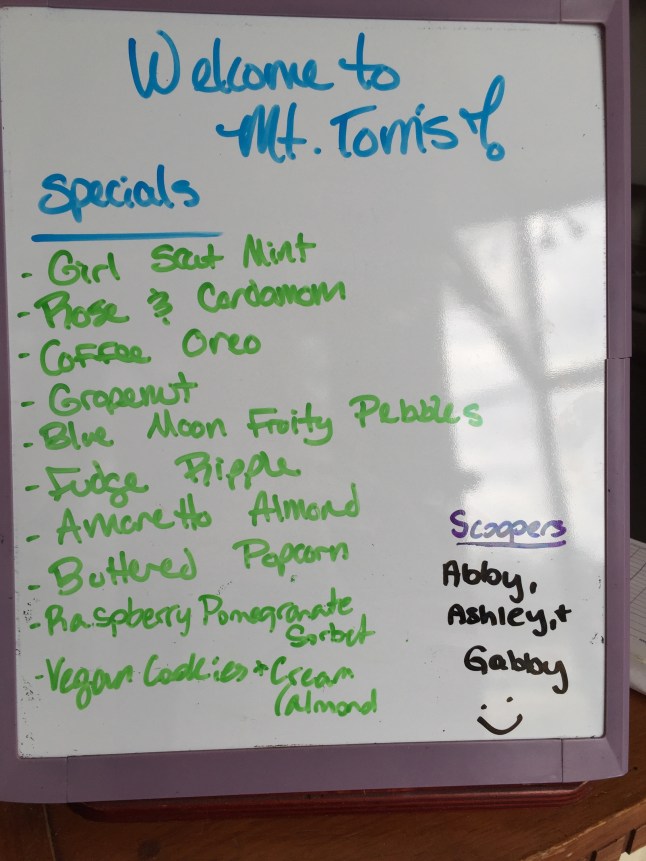 Welcome to
Mt. Tom's
Specials
- Girl Scout Mint
- Rose & Cardamom
- Coffee Oreo
- Grapenut
- Blue Moon Froity Pebbles
- Fudge Ripple
- Amaretto Almond
- Buttered Popcorn
- Raspberry Pomegranate
Sorbet
- Vegan Cookies + Cream
(almond
Scoopers
Abby,
Ashley, +
Gabby